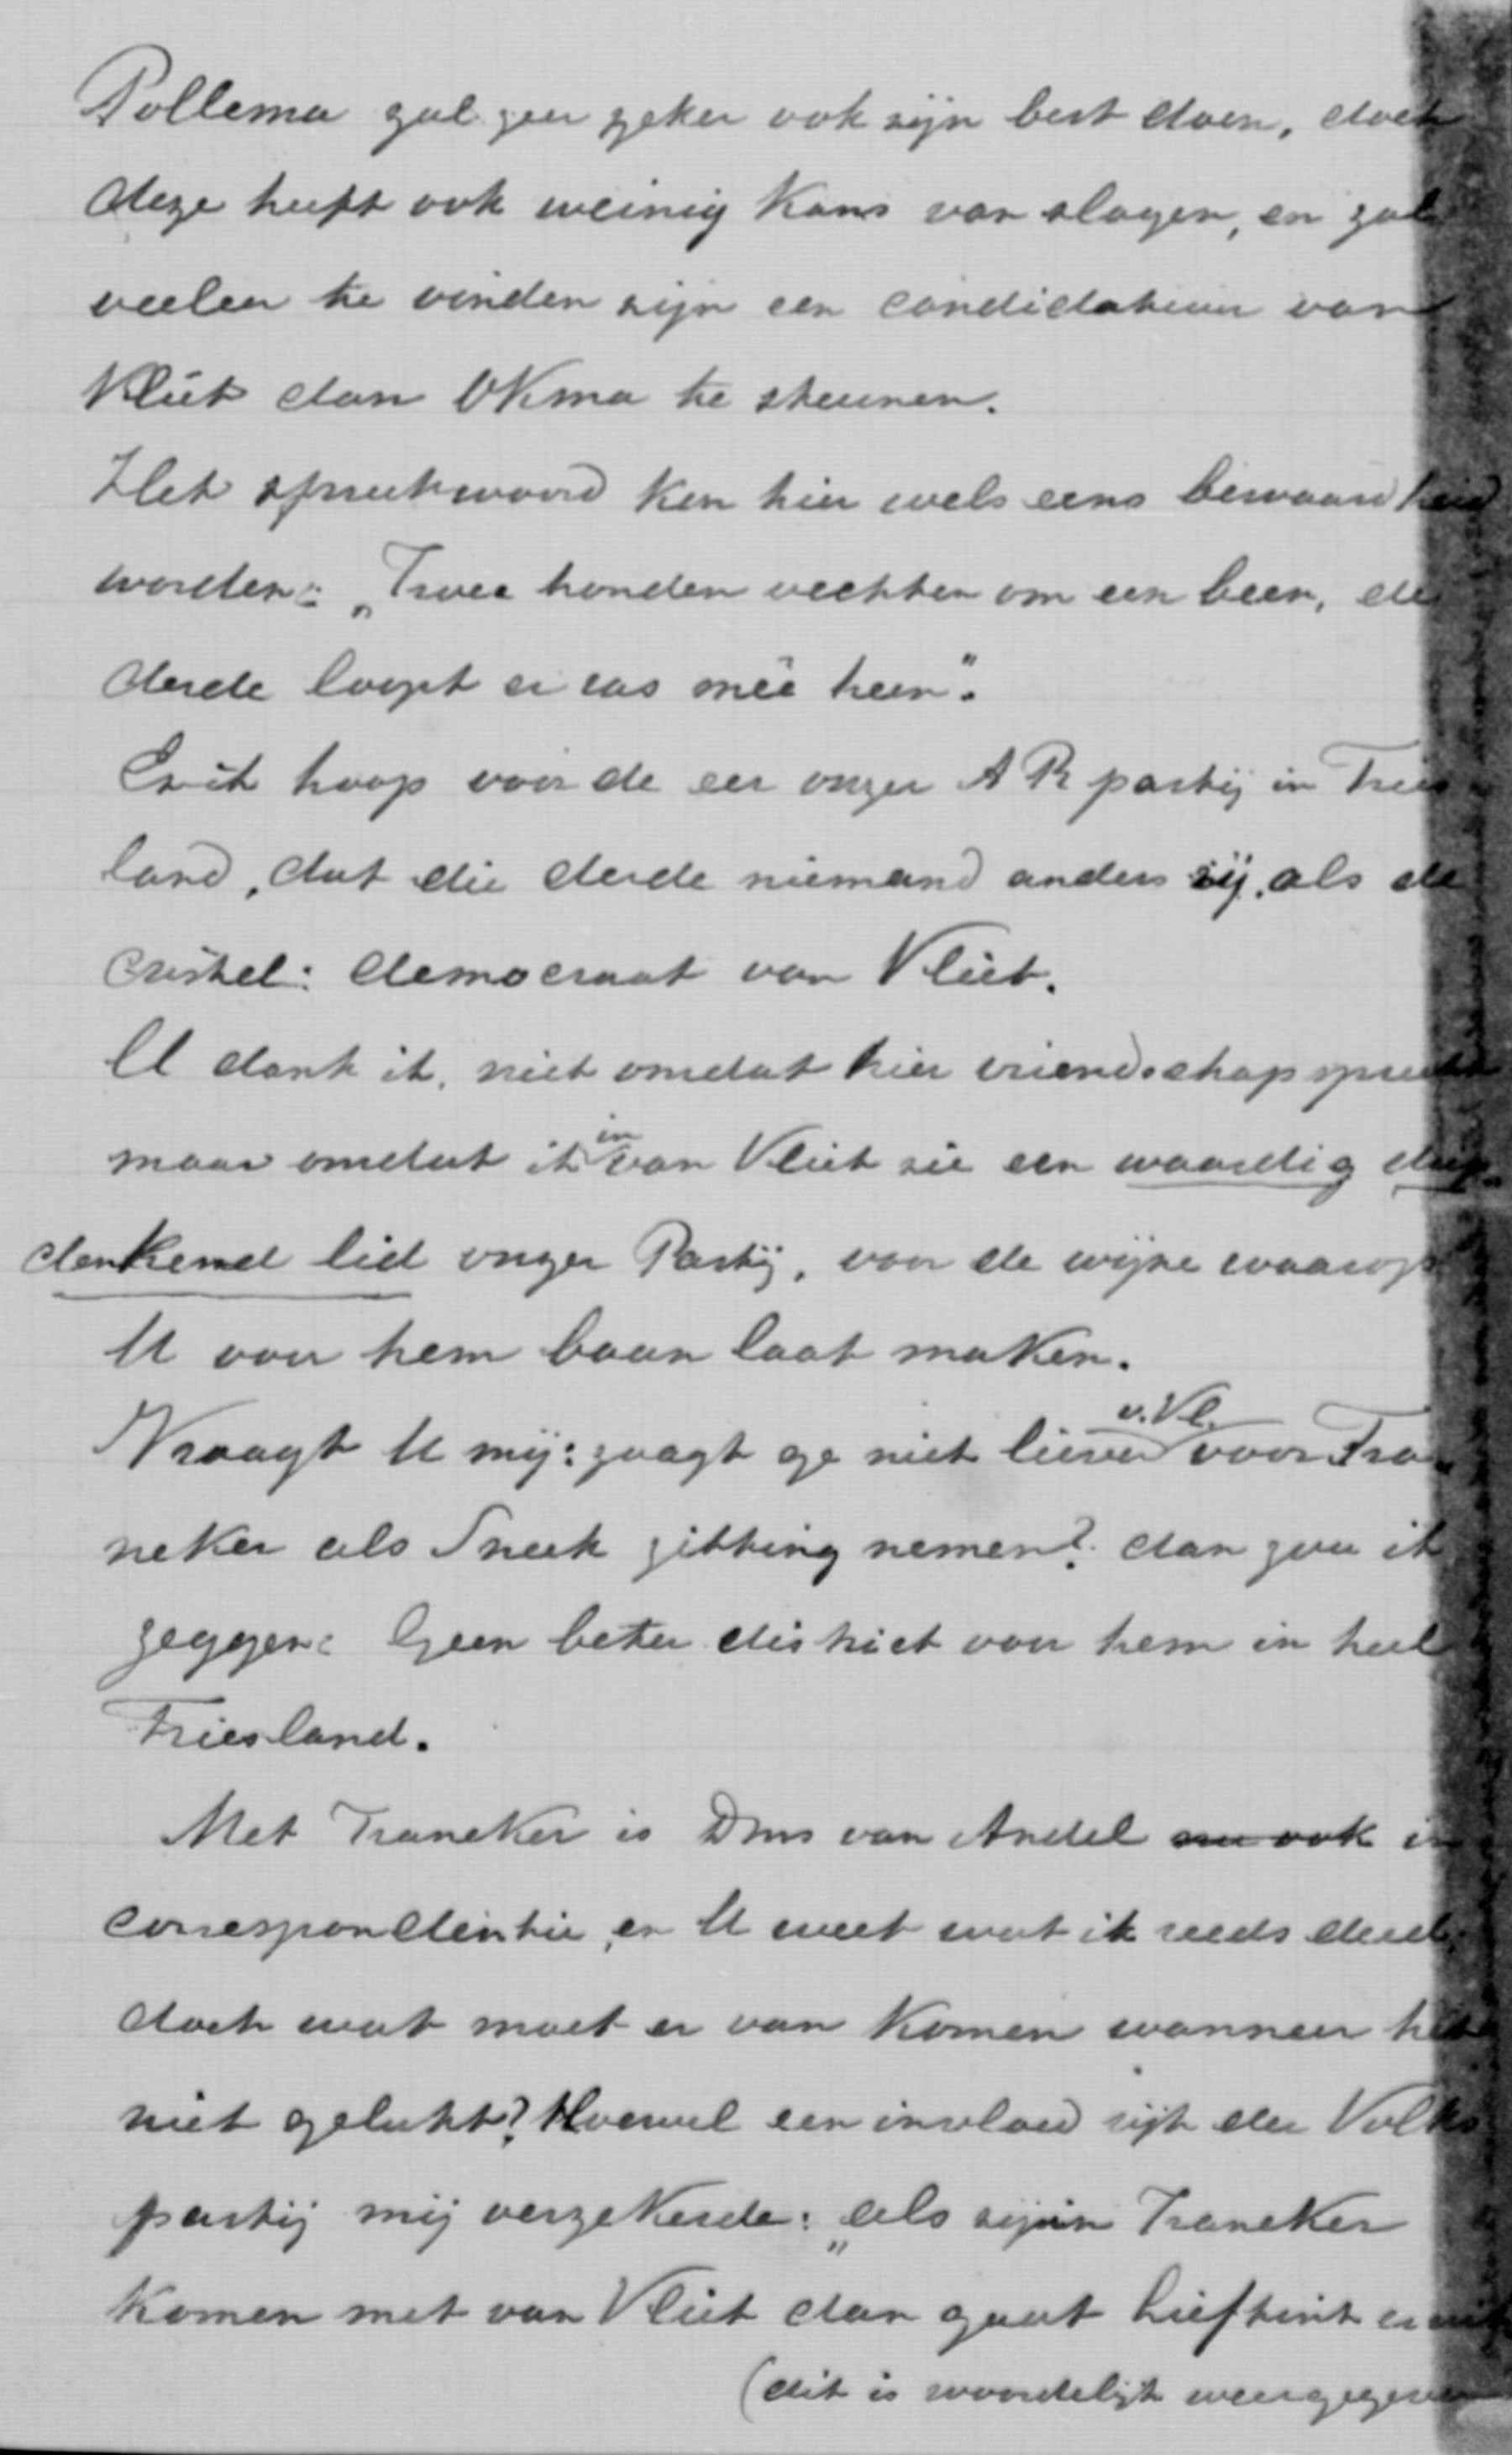 Pollema zal zeer zeker ook zijn best doen, doch
deze heeft ook weinig Kans van slagen, en zal
veeleer te vinden zijn een candidatuur van
Vliet dan OKma te steunen.
Het spreekwoord kon hier wels eens bewaarheid
worden: „Twee honden vechten om een been, de
derde loopt er ras mêe heen".
En ik hoop voor de eer onzer A R partij in Fries
land, dat die derde niemand anders zij, als de
cristel: democraat van Vliet.
U dank ik, niet omdat hier vriendschap spreekt
maar omdat ik in van Vliet zie een waardig diep
denkend lid onzer Partij, voor de wijze waarop
U voor hem baan laat maken.
Vraagt U mij: zaagt ge niet liever v. Vl. voor Fra-
neker als Sneek zitting nemen? dan zou ik
zeggen: Geen beter district voor hem in heel
Friesland.
Met Franeker is Dms van Andel nu ook in
correspondentie, en U weet wat ik reeds deed,
doch wat moet er van Komen wanneer het
niet gelukt? Hoewel een invloed rijk der Volks
partij mij verzekerde: „als zij in Franeker
Komen met van Vliet dan gaat Lieftink er uit
(dit is woordelijk weergegeven